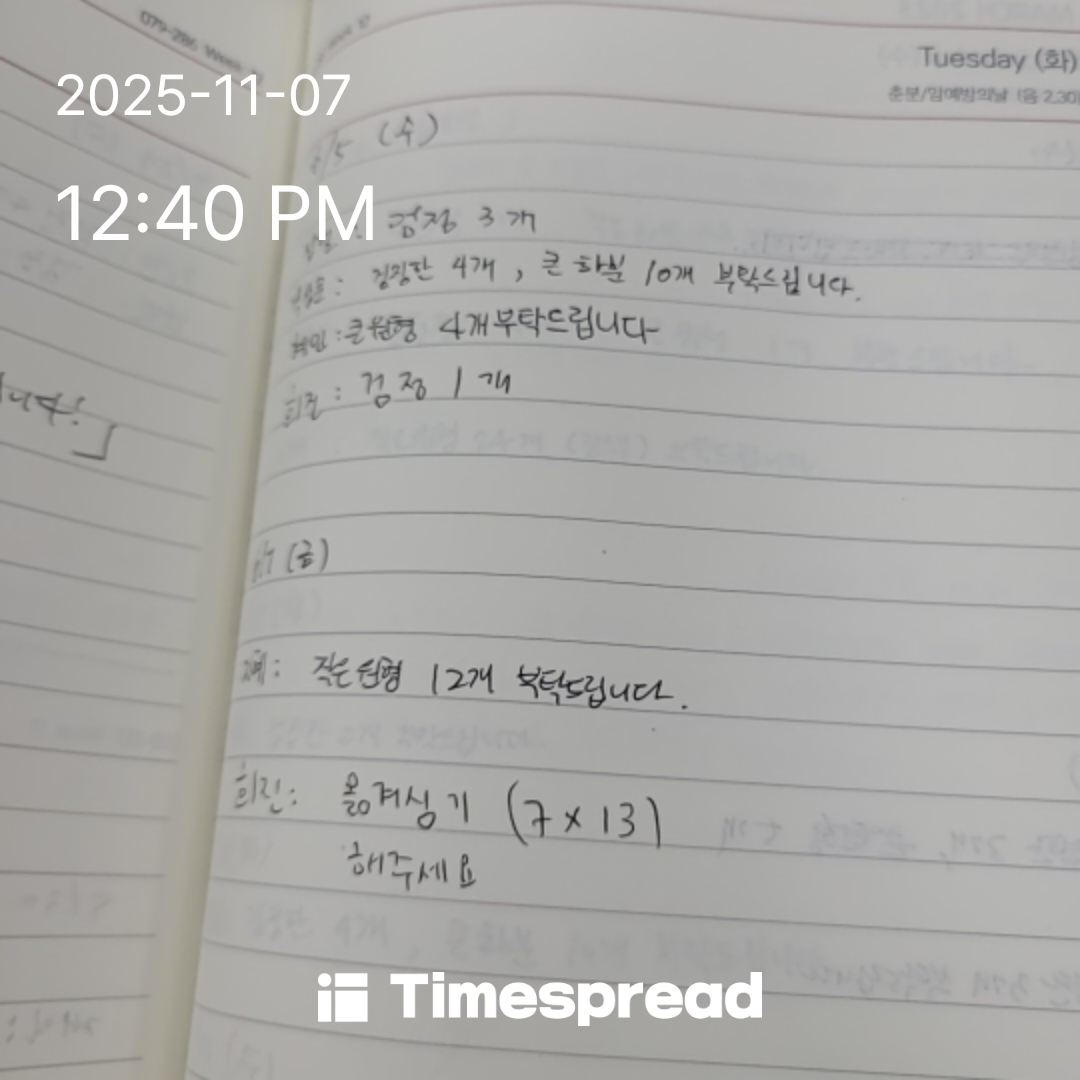 2025-11-07
12:40 PM
079-286
Tuesday (화)
춘분/암예방의날 (음 2.30)
/5 (수)
: 검정 3개
: 검정판 4개, 큰 화분 10개 부탁드립니다.
혜민 : 큰원형 4개 부탁드립니다
희진 : 검정 1개
니다!」
/7 (금)
: 작은원형 12개 부탁드립니다.
희진: 옮겨심기 (7×13)
해주세요
Timespread